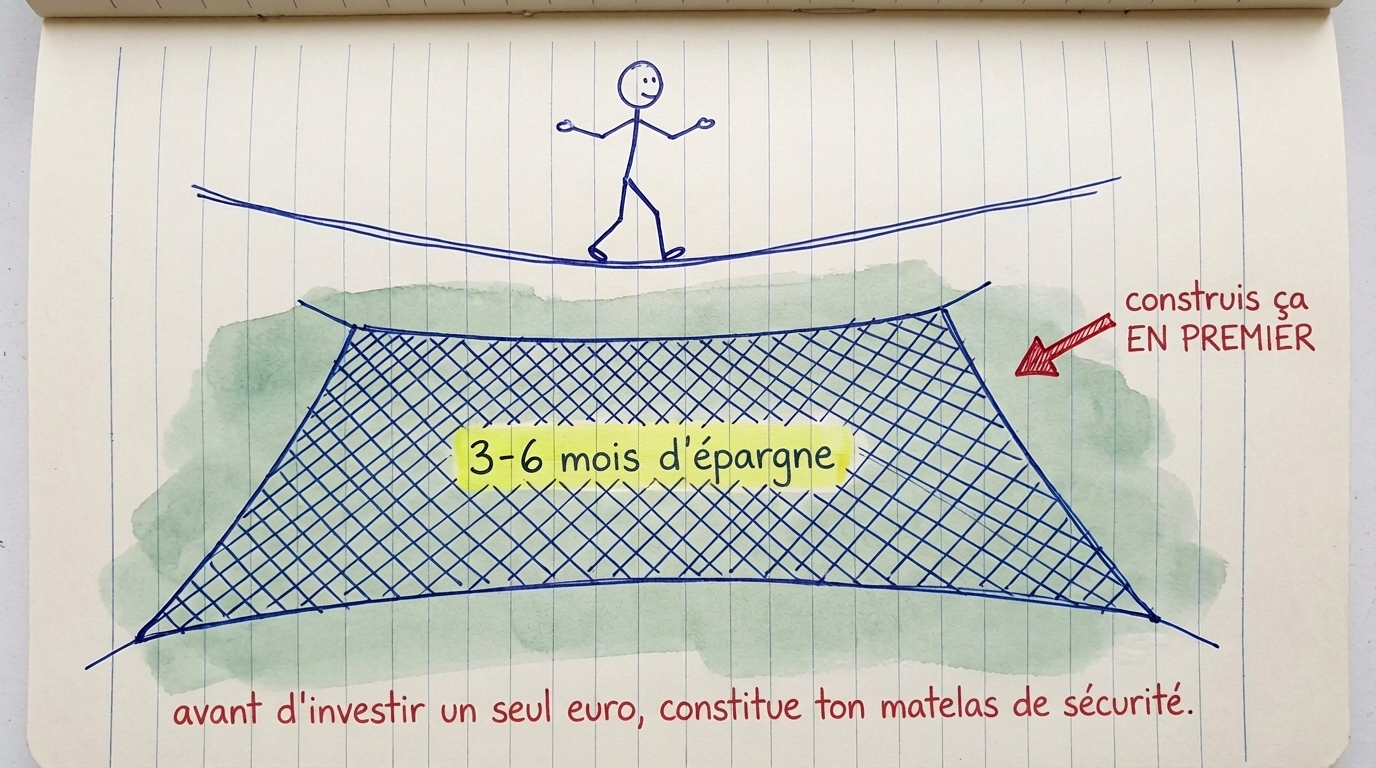 construis ça
EN PREMIER
3-6 mois d'épargne
avant d'investir un seul euro, constitue ton matelas de sécurité.